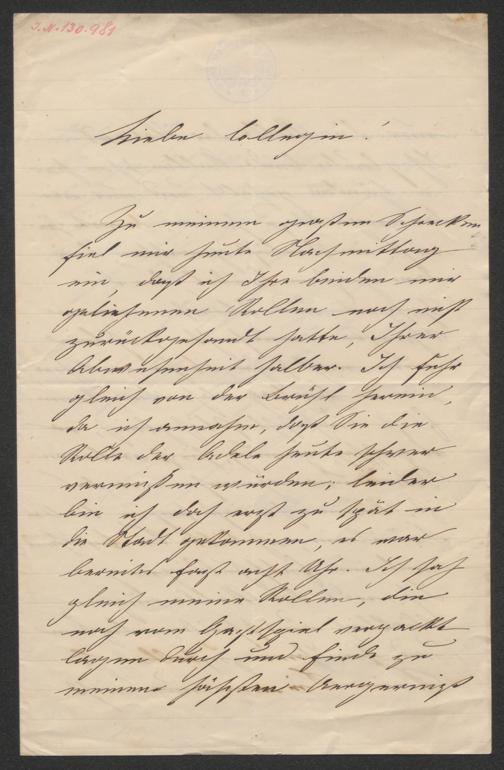 I.N. 130.981
Liebe Collegin!
Zu meinem großen Schrecken
fiel mir heute Nachmittag
ein, daß ich Ihre beiden mir
geliehenen Rollen noch nicht
zurückgesandt hatte, Ihrer
Abwesenheit halber. Ich fuhr
gleich von der Brühl herein,
da ich annahm, daß Sie die
Rolle der Adele heute schwer
vermissen würden; leider
bin ich doch erst zu spät in
die Stadt gekommen, es war
bereits fast acht Uhr. Ich sah
gleich meine Rollen, die
noch vom Gastspiel verpackt
lagen durch und finde zu
meinem höchsten Aergerniß